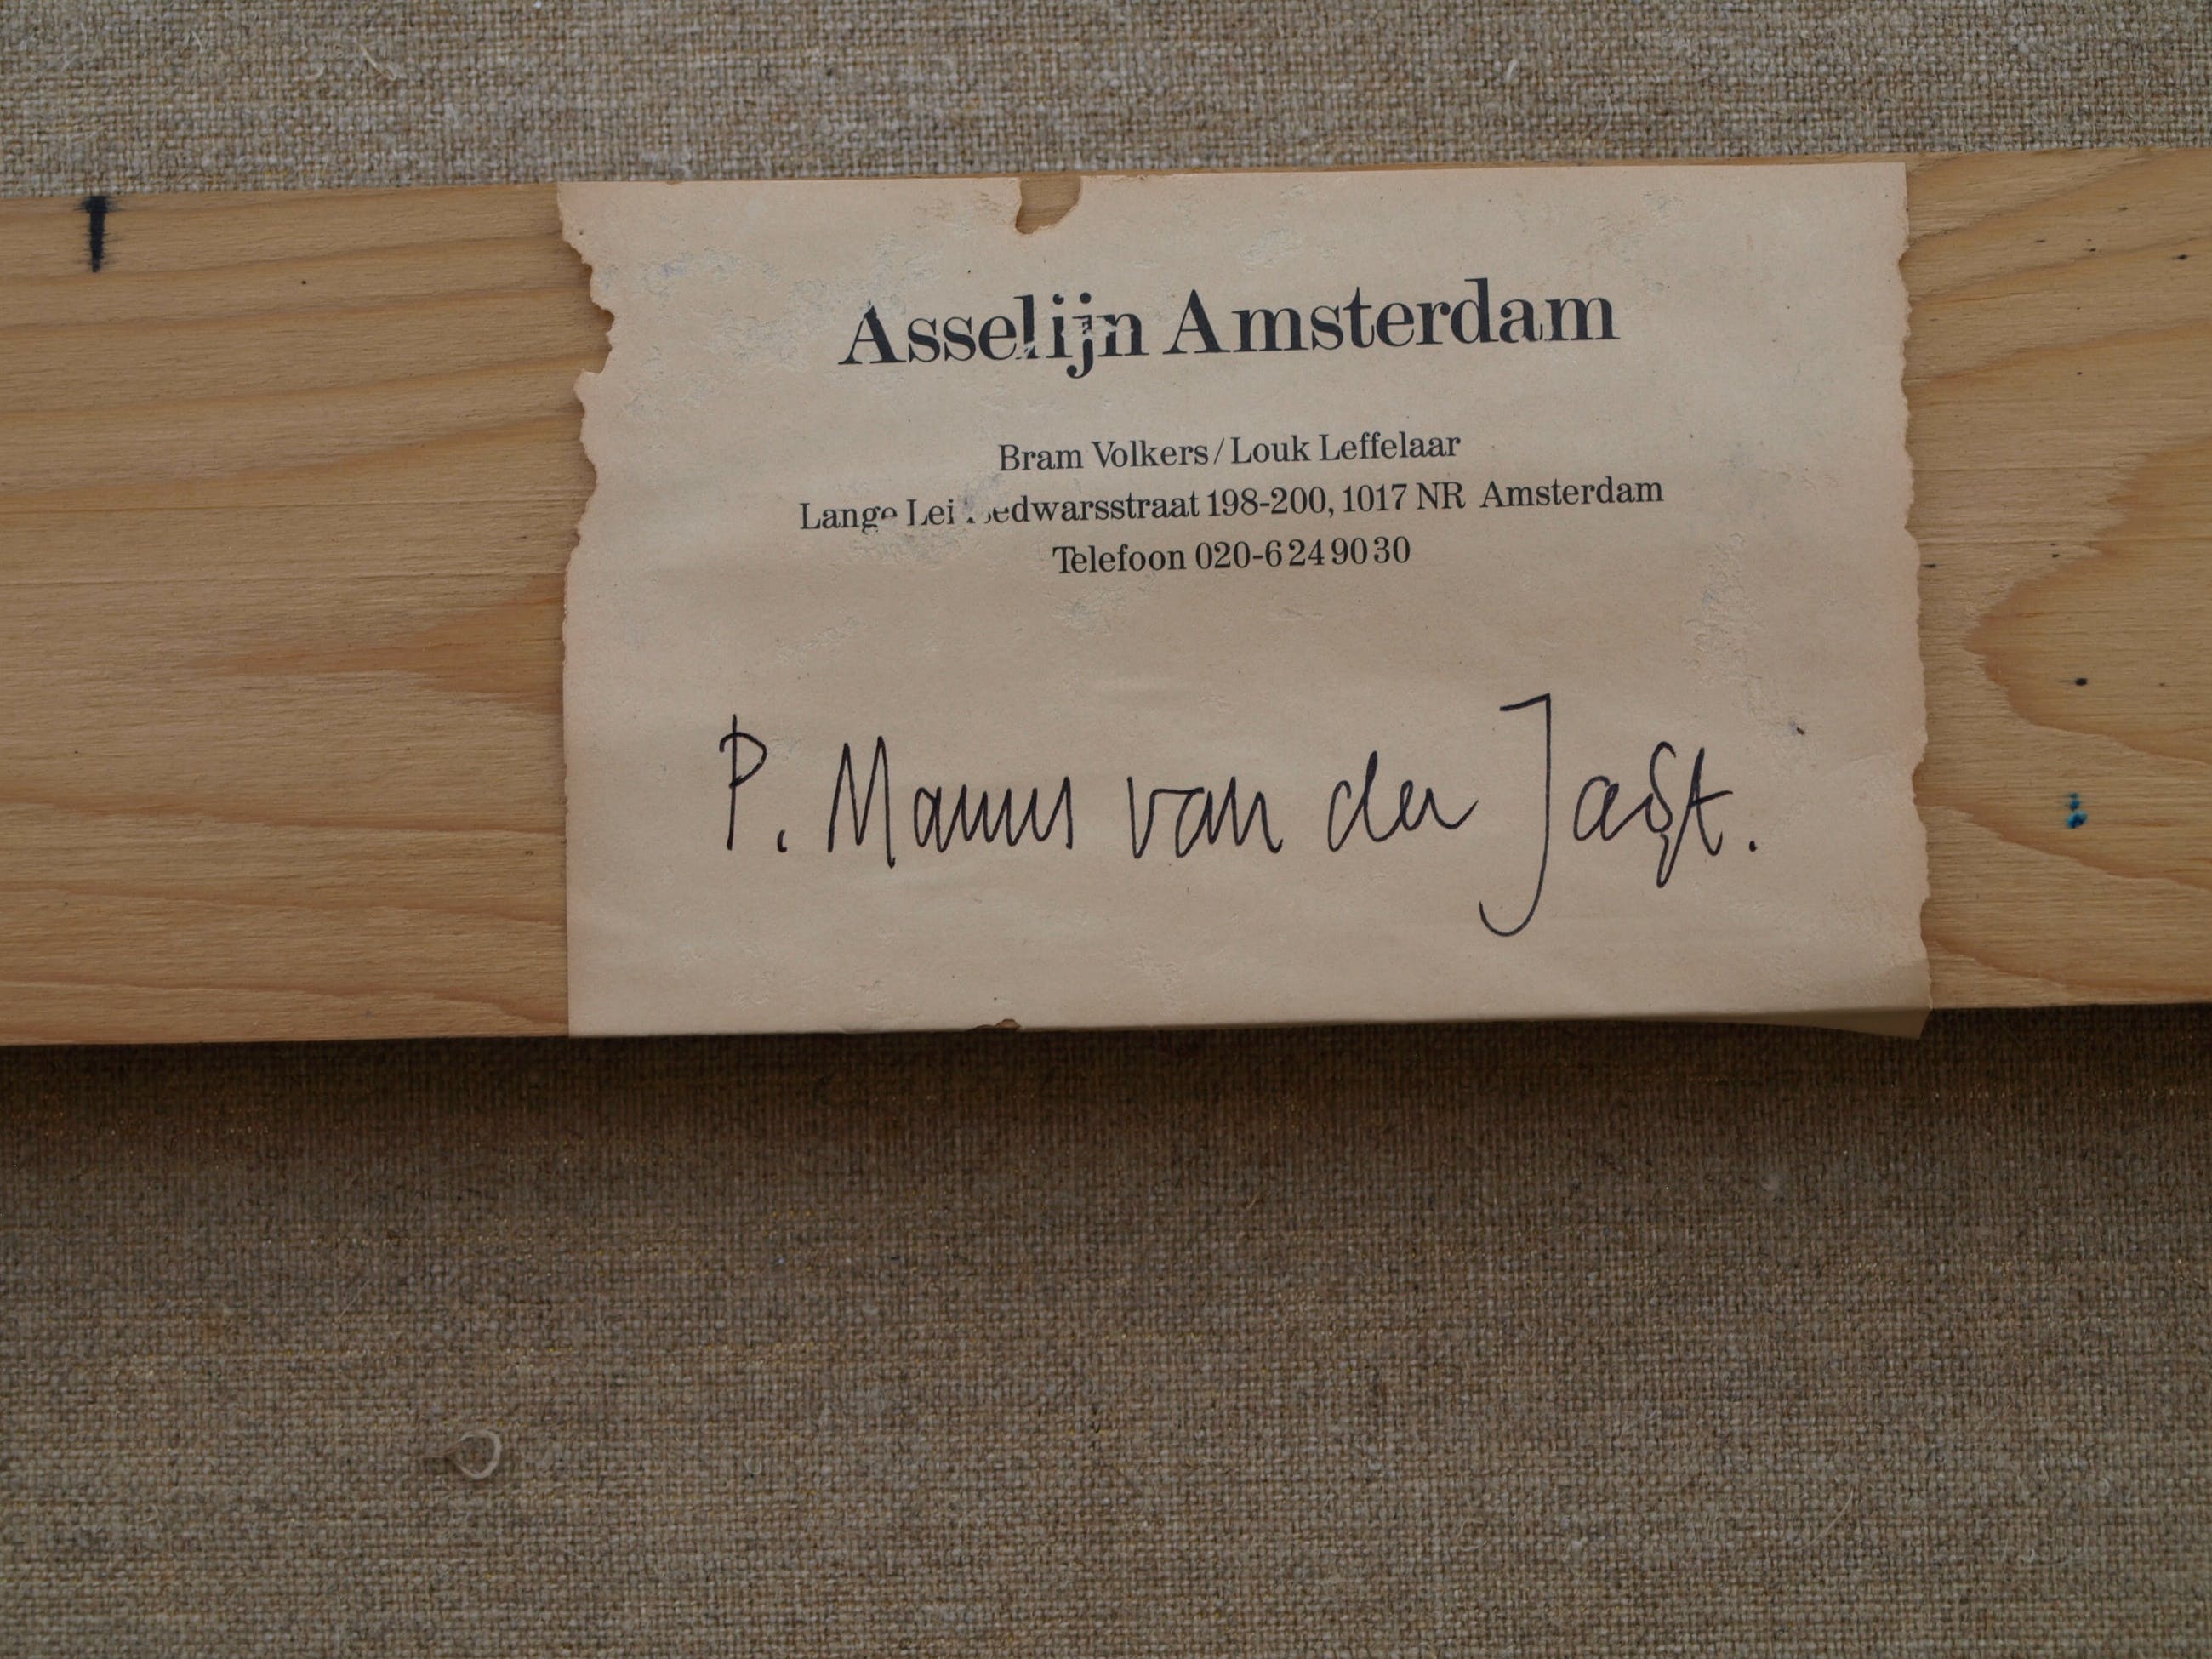 Asselijn Amsterdam
Bram Volkers / Louk Leffelaar
Lange 198-200, 1017 NR Amsterdam
Telefoon 020-6249030
P. Manus van der Jagt.